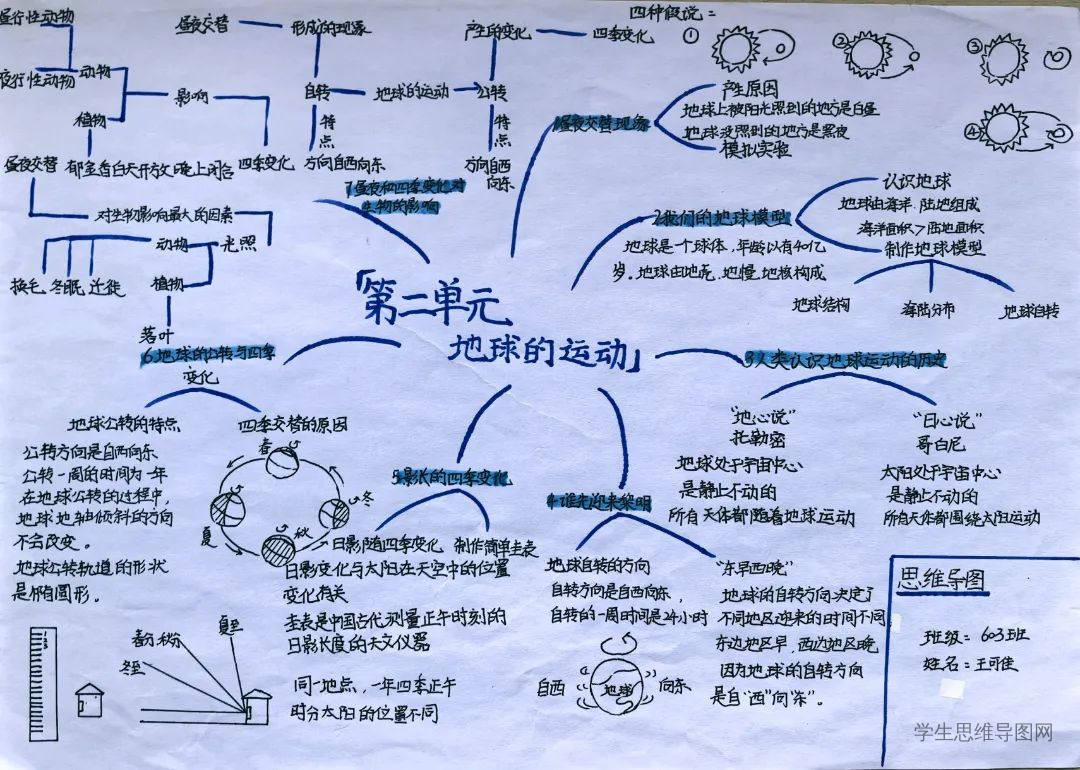 「第二单元
地球的运动」
四种假说：
①
②
③
④
1昼夜交替现象
产生原因
地球上被阳光照到的地方是白昼
地球没照到的地方是黑夜
模拟实验
2我们的地球模型
地球是一个球体，年龄以有40亿
岁。地球由地壳、地慢、地核构成
认识地球
地球由海洋、陆地组成
海洋面积>陆地面积
制作地球模型
地球结构
海陆分布
地球自转
3人类认识地球运动的历史
"地心说"
托勒密
地球处于宇宙中心
是静止不动的
所有天体都随着地球运动
"日心说"
哥白尼
太阳处于宇宙中心
是静止不动的
所有天体都围绕太阳运动
4谁先迎来黎明
地球自转的方向
自转方向是自西向东，
自转的一周时间是24小时
自西
地球
向东
"东早西晚"
地球的自转方向决定了
不同地区迎来的时间不同
东边地区早，西边地区晚
因为地球的自转方向
是自"西"向"东"。
5影长的四季变化
日影随四季变化
制作简单圭表
日影变化与太阳在天空中的位置
变化有关
圭表是中国古代测量正午时刻的
日影长度的天文仪器
同一地点，一年四季正午
时分太阳的位置不同
夏至
春分、秋分
冬至
6地球的公转与四季
变化
地球公转的特点
公转方向是自西向东
公转一周的时间为一年
在地球公转的过程中，
地球地轴倾斜的方向
不会改变。
地球公转轨道的形状
是椭圆形。
四季交替的原因
春
冬
秋
夏
7昼夜和四季变化对
生物的影响
昼夜交替
形成的现象
产生的变化
四季变化
自转
地球的运动
公转
特点
特点
方向自西向东
方向自西
向东
昼行性动物
夜行性动物
动物
植物
影响
昼夜交替
郁金香白天开放晚上闭合
四季变化
对生物影响最大的因素
动物
光照
换毛
冬眠
迁徙
植物
落叶
思维导图
班级：603班
姓名：王可佳
学生思维导图网